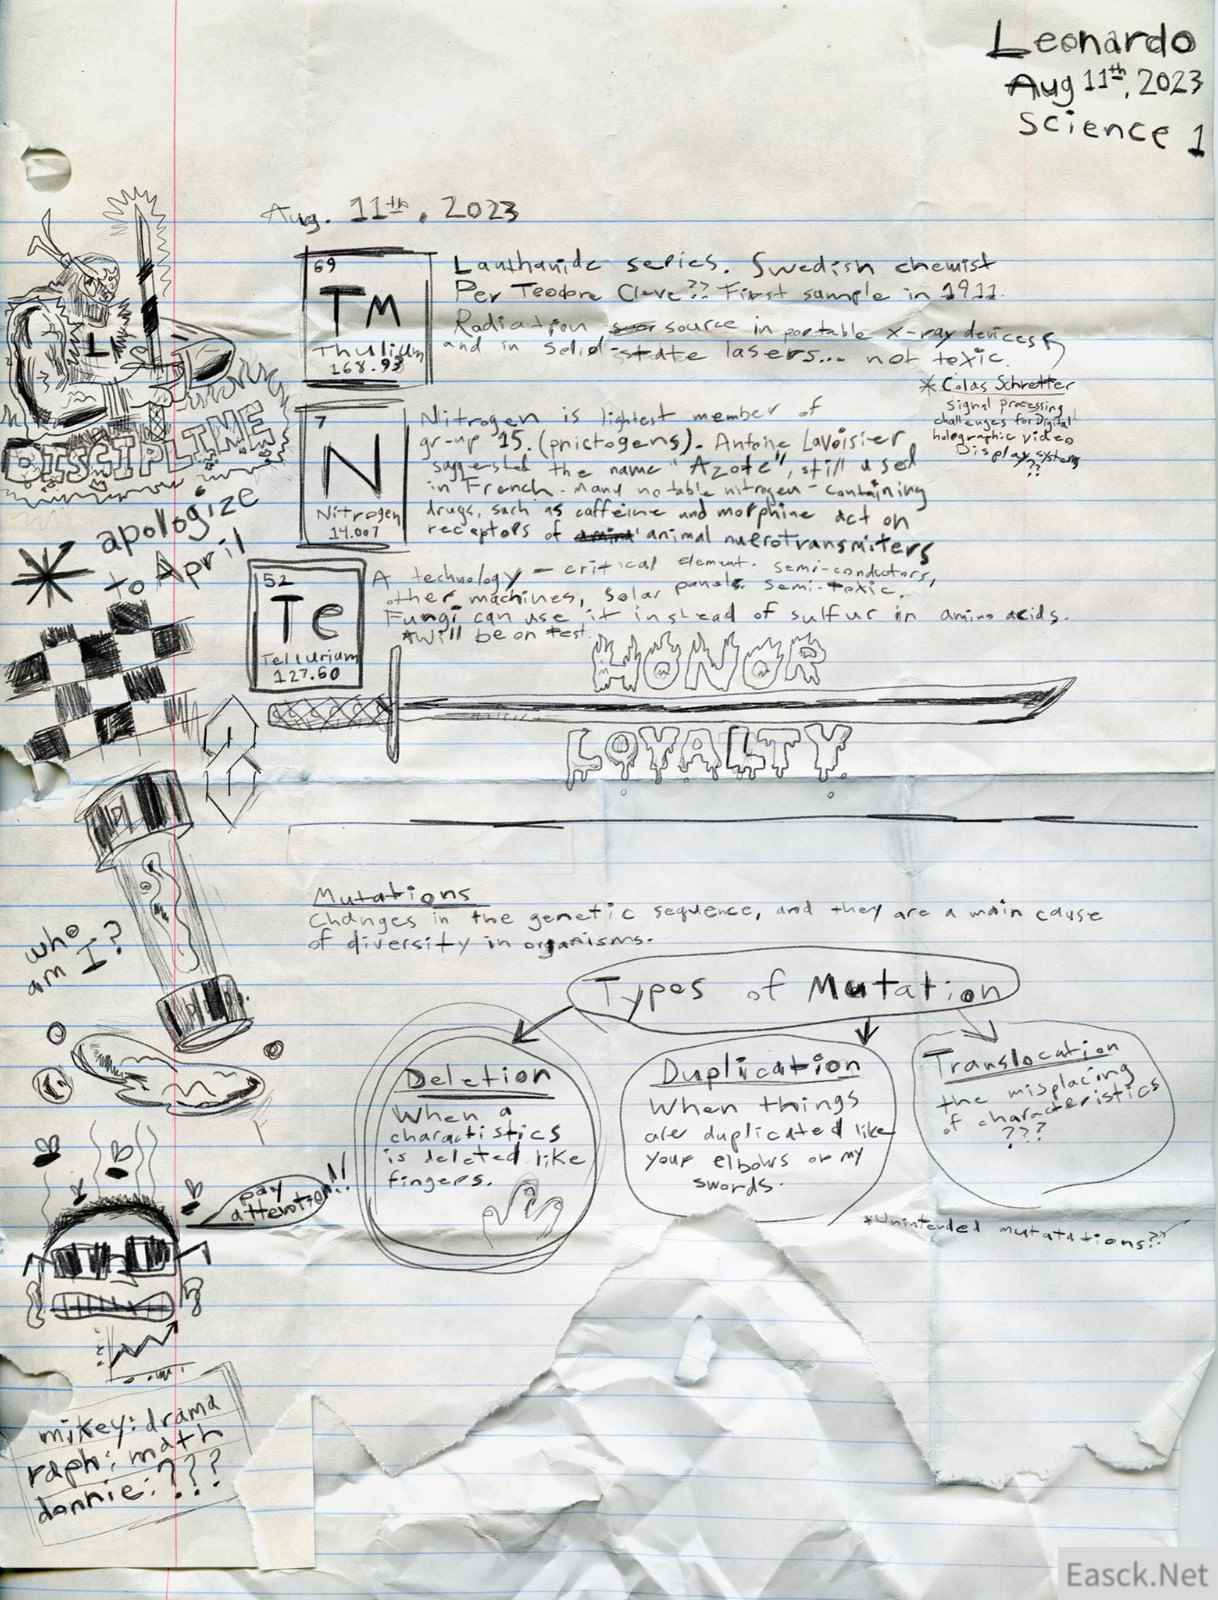 Leonardo
Aug 11th, 2023
Science 1
Aug. 11th, 2023
69
Tm
Thulium
168.93
Lanthanide series. Swedish chemist
Per Teodore Cleve?? First sample in 1911.
Radiation source in portable x-ray devices
and in solid-state lasers... not toxic
* Colas Schretter
signal processing
challenges for Digital
holographic video
Display systems
??
7
N
Nitrogen
14.007
Nitrogen is lightest member of
group 15. (pnictogens). Antoine Lavoisier
suggested the name "Azote", still used
in French. Many notable nitrogen-containing
drugs, such as caffeine and morphine act on
receptors of animal nuerotransmiters
DISCIPLINE
* apologize
to April
52
Te
Tellurium
127.60
A technology-critical element. semi-conductors,
other machines, solar panels. semi-toxic.
Fungi can use it instead of sulfur in amino acids.
*Will be on test.
HONOR
LOYALTY
who
am I?
Mutations
Changes in the genetic sequence, and they are a main cause
of diversity in organisms.
Types of Mutation
Deletion
When a
charactistics
is deleted like
fingers.
Duplication
When things
are duplicated like
your elbows or my
swords.
Translocation
the misplacing
of characteristics
???
*Unintended mutatations??
pay
attention!!
mikey: drama
raph: math
donnie: ???
Easck.Net